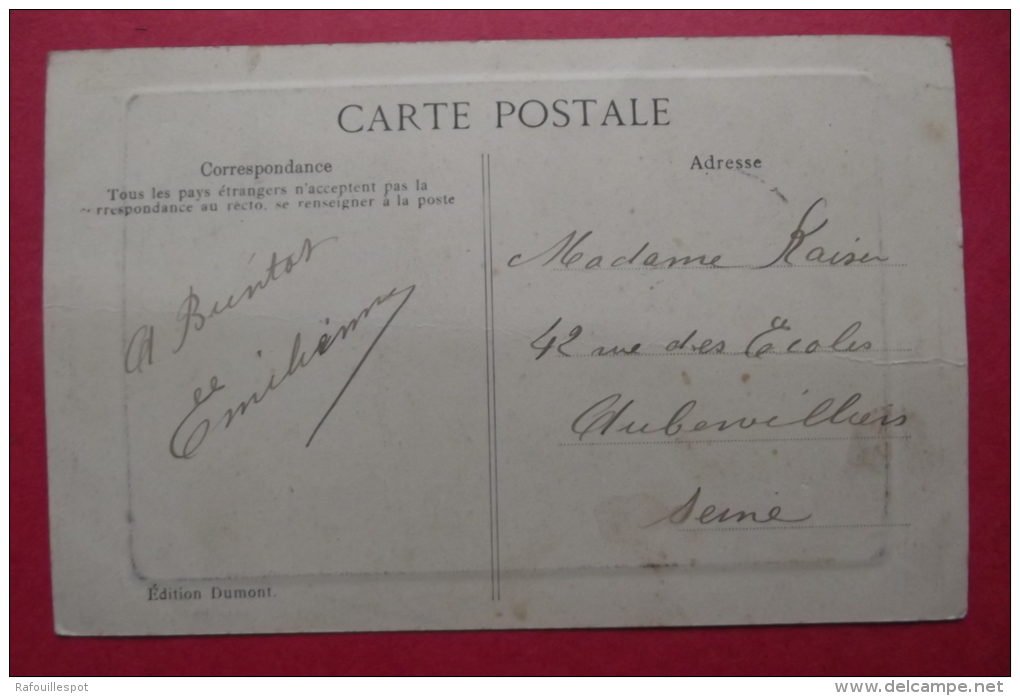 CARTE POSTALE
Correspondance
Tous les pays étrangers n'acceptent pas la
rrespondance au recto, se renseigner à la poste
A Bientot
Emilienne
Édition Dumont.
Adresse
Madame Kaiser
42 rue des Ecoles
Aubervilliers
Seine
Rafouillespot
delcampe.net